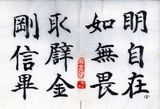 明自在
如無畏
取譬金
剛信畢